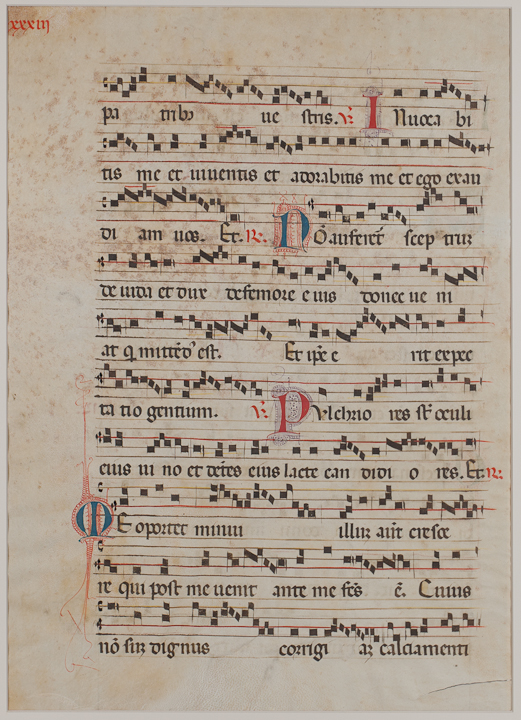 xxxiii
pa tribꝰ ue stris. ℣. I Nuoca bi
tis me et uiuentis et adorabitis me et ego exau
di am uos. Et. ℟. N Õ auferet̃ scep trũ
de iuda et dux de femore e ius donec ue ni
at q̃ mittẽdꝰ est. Et ip̃e e rit expec
ta tio gentium. ℣. P Vlchrio res st̃ oculi
eius ui no et dẽtes eius lacte can didi o res. Et. ℟.
M E oportet minui illũ aũt cresce
re qui post me uenit ante me fc̃s ẽ. Cuius
nõ sũ dignus corrigi aʒ calciamenti